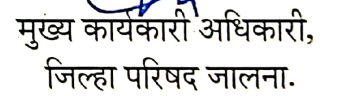 मुख्य कार्यकारी अधिकारी,
जिल्हा परिषद जालना.